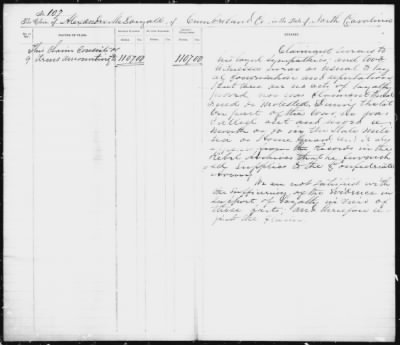 No 107
The Claim of Alexander McDougald, of Cumberland Co. in the State of North Carolina
NATURE OF CLAIM.
AMOUNT CLAIMED.
AMOUNT ALLOWED.
REMARKS.
This Claim Consists of
9 items amounting to 1107.00 1107.00
Claimant swears to
his loyal sympathies, and two
witnesses swear as usual to loy
al conversation and reputation
but there are no acts of loyalty
proved nor was claimant threat
ened or molested. During the lat
ter part of the war, he was
called out and served a
month or so in the State Mili
tia or Home Guard and it also
from the records in the
Rebel archives that he furnish
ed supplies to the Confederate
Army.
We are not satisfied with
the sufficiency of the evidence in
support of loyalty in view of
these facts, and therefore re
ject the claim.